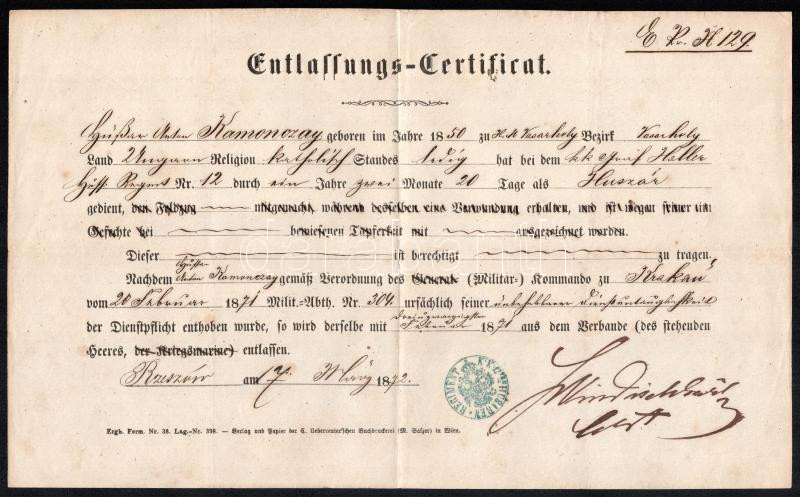 E Pr. N 129.
Entlassungs-Certificat.
Hußar Anton Kamonczay geboren im Jahre 1850 zu H. M. Vasarhely Bezirk Vasarhely
Land Ungarn Religion katholisch Standes ledig hat bei dem kk Graf Haller
Huss. Regmt Nr. 12 durch ein Jahre zwei Monate 20 Tage als Huszár
gedient, den Feldzug mitgemacht, während desselben eine Verwundung erhalten, und ist wegen seiner im
Gefechte bei bewiesenen Tapferkeit mit ausgezeichnet worden.
Dieser ist berechtigt zu tragen.
Nachdem Hussar Anton Kamonczay gemäß Verordnung des General- (Militär-) Kommando zu Krakau
vom 20 Februar 1871 Milit.-Abth. Nr. 304 ursächlich seiner unbehebbaren Dienstuntauglichkeit
der Dienstpflicht enthoben wurde, so wird derselbe mit Dreiundzwanzigsten Februar 1871 aus dem Verbande (des stehenden
Heeres, der Kriegsmarine) entlassen.
Rzeszów am 17. März 1872.
REGIMENT
Ergb. Form. Nr. 38. Lag.-Nr. 398. — Verlag und Papier der C. Ueberreuter'schen Buchdruckerei (M. Salzer) in Wien.
darabanth